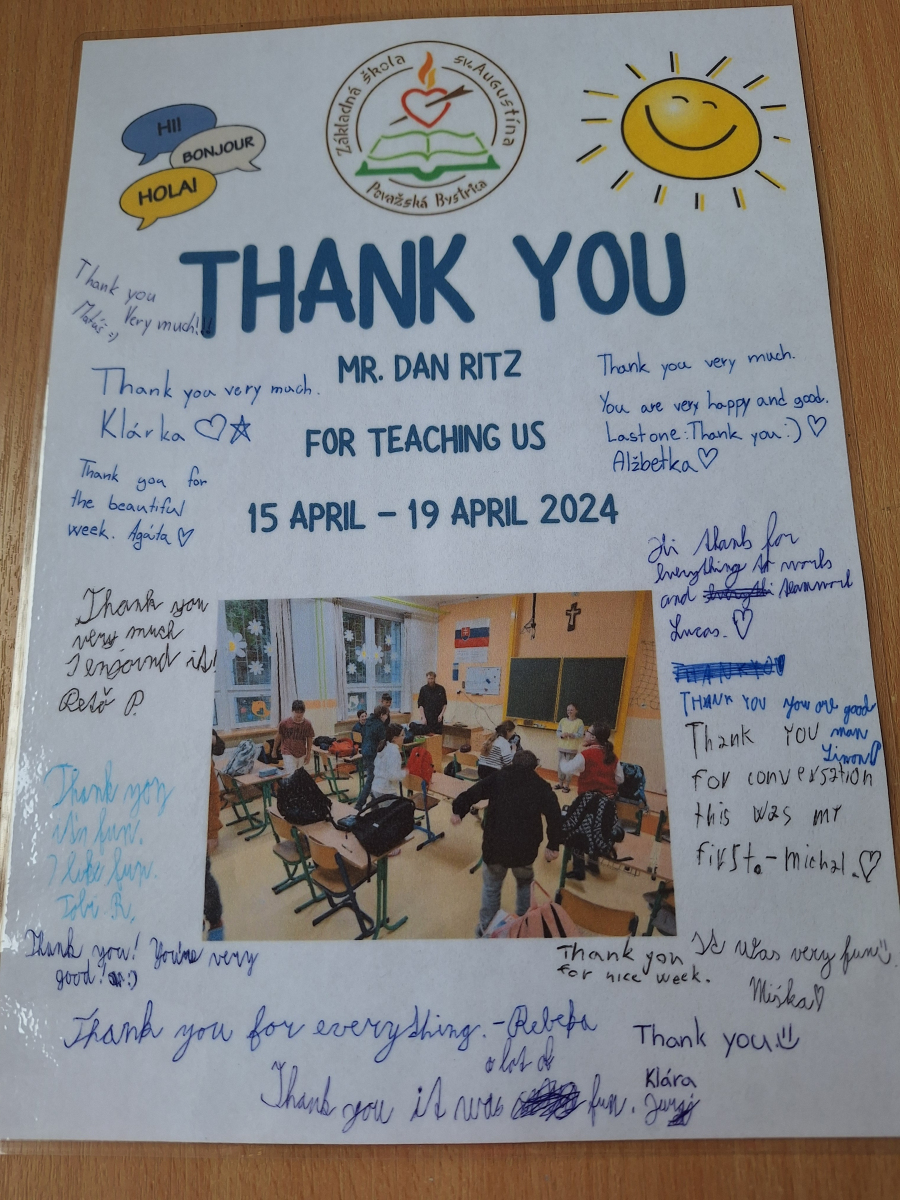 Základná škola
sv. Augustína
Považská Bystrica
HI!
BONJOUR
HOLA!
THANK YOU
MR. DAN RITZ
FOR TEACHING US
15 APRIL – 19 APRIL 2024
Thank you
Very much!!
Matúš =)
Thank you very much.
Klárka
Thank you for
the beautiful
week. Agáta
Thank you
very much
I enjound it!
P.
Thank you
it's fun.
I like fun.
Tobi R.
Thank you! You're very
good! :)
Thank you very much.
You are very happy and good.
Last one: Thank you :)
Alžbetka
Hi thanks for
everything
and teamwork
Lucas.
THANK YOU you are good
man
Thank you
for conversation
this was my
first. - Michal.
Thank you
for nice week.
It was very fun
Miška
Thank you for everything. - Rebeka
Thank you
a lot of
Thank you it was fun.
Klára